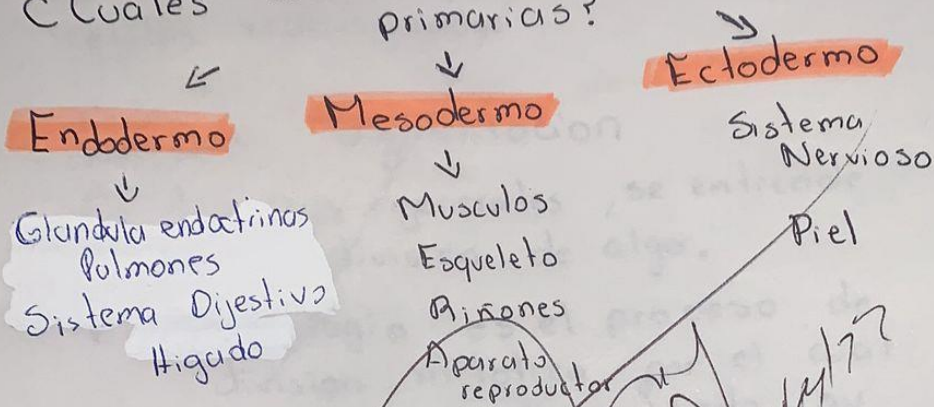 Cuales
primarias?
Endodermo
Glandula endoctrinas
Pulmones
Sistema Dijestivo
Higado
Mesodermo
Musculos
Esqueleto
Riñones
Aparato
reproductor
Ectodermo
Sistema
Nervioso
Piel